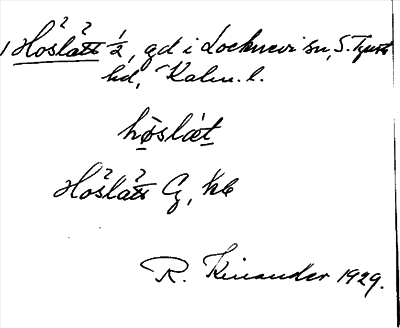 Höslätt 1/2, gd i Locknevi sn, S. Tjust
hd, Kalm. l.
høslæt
Höslätt G, kb
R. Kinander 1929.